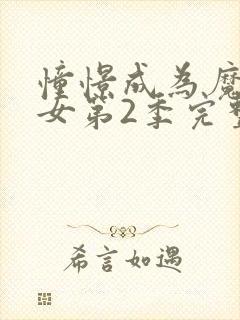 憧憬成为魔
女第2季完整
希言如遇